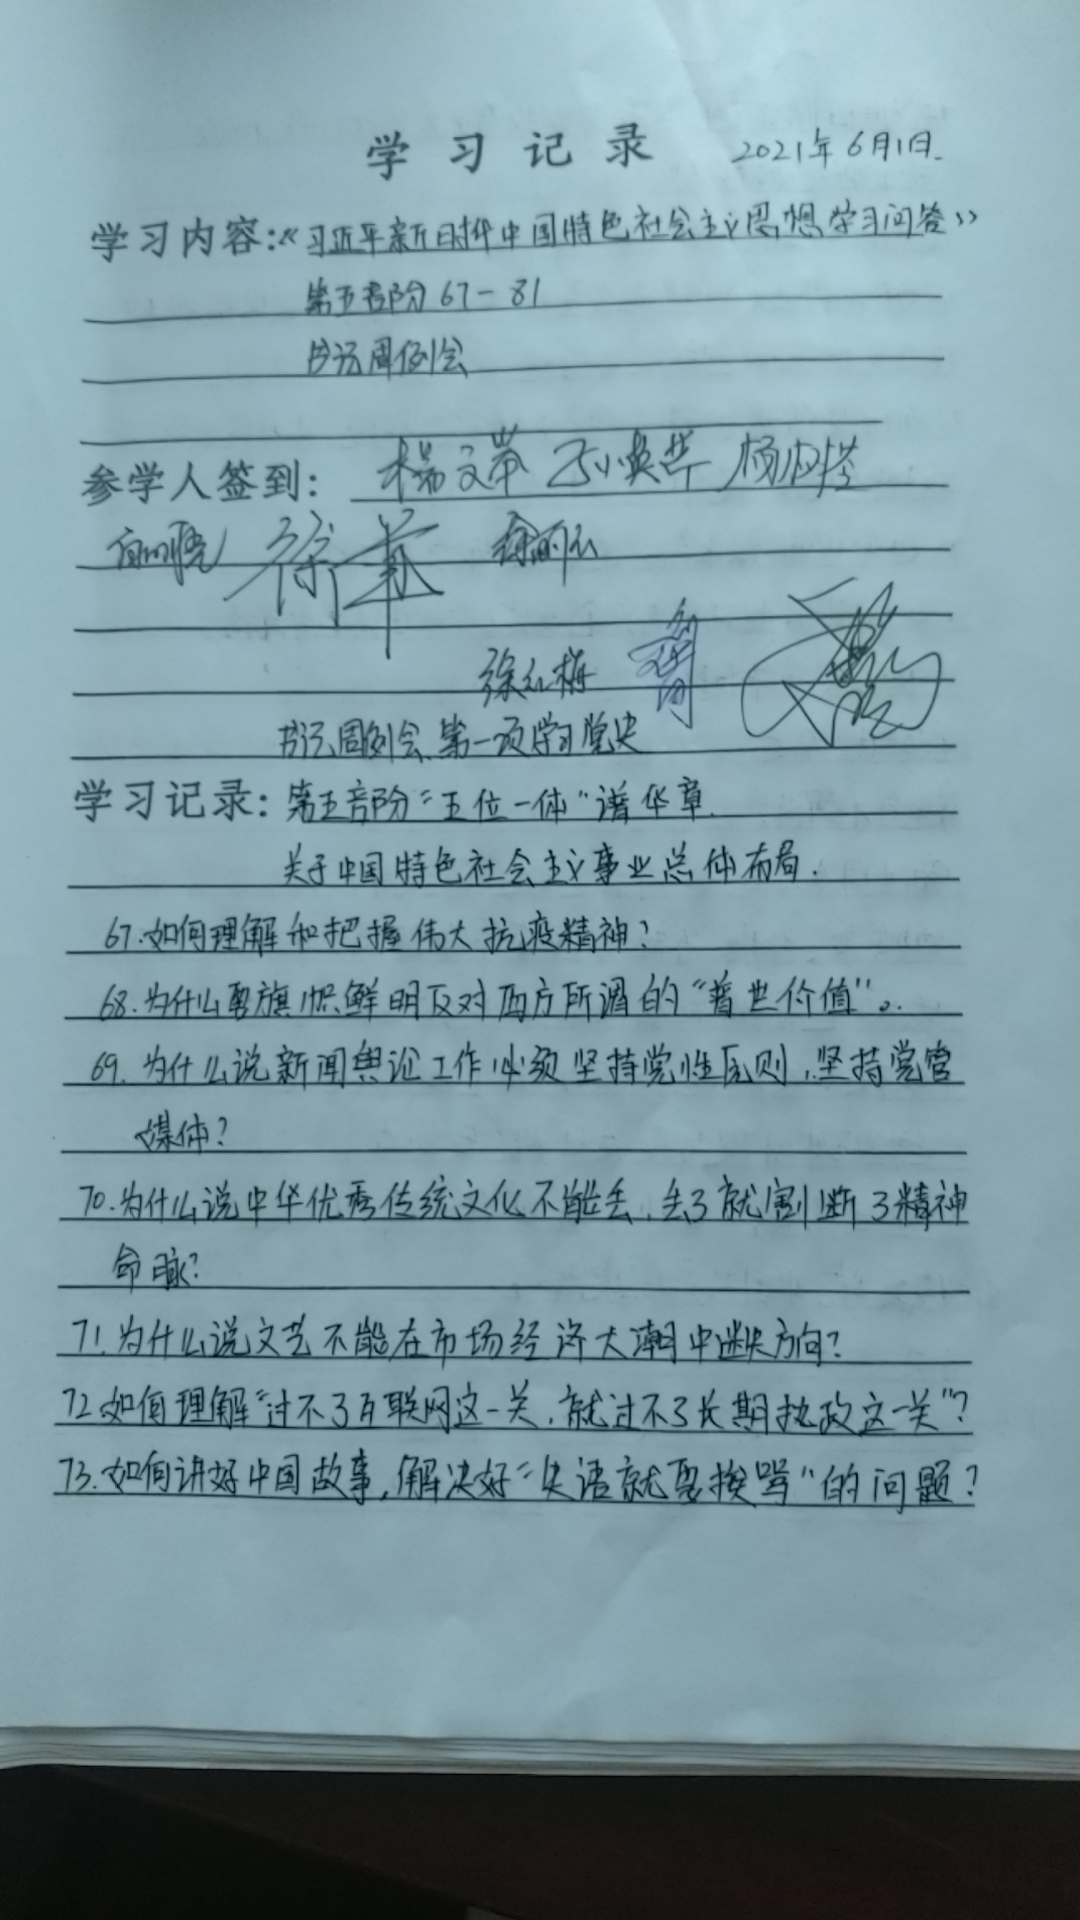 学习记录 2021年6月1日.
学习内容:《习近平新时代中国特色社会主义思想学习问答》
第五部分67-81
书记周例会
参学人签到:
徐军
徐红梅
书记周例会 第一项学习党史
学习记录: 第五部分“五位一体”谱华章.
关于中国特色社会主义事业总体布局.
67.如何理解和把握伟大抗疫精神?
68.为什么要旗帜鲜明反对西方所谓的“普世价值”。
69.为什么说新闻舆论工作必须坚持党性原则,坚持党管
媒体?
70.为什么说中华优秀传统文化不能丢,丢了就割断了精神
命脉?
71.为什么说文艺不能在市场经济大潮中迷失方向?
72.如何理解“过不了互联网这一关,就过不了长期执政这一关”?
73.如何讲好中国故事,解决好“失语就要挨骂”的问题?